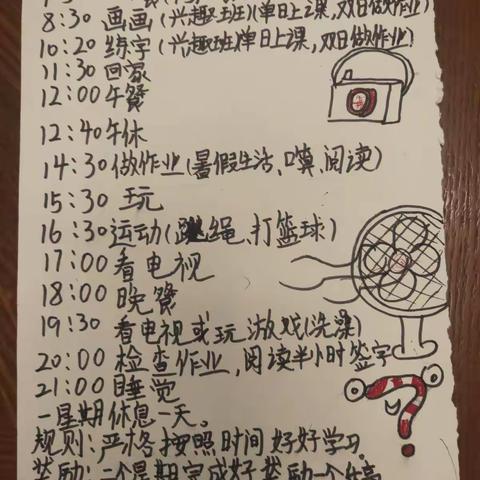 8:30 画画(兴趣班)(单日上课,双日做作业)
10:20 练字(兴趣班)(单日上课,双日做作业)
11:30 回家
12:00 午餐
12:40 午休
14:30 做作业(暑假生活、口算、阅读)
15:30 玩
16:30 运动(跳绳、打篮球)
17:00 看电视
18:00 晚餐
19:30 看电视或玩游戏(洗澡)
20:00 检查作业,阅读半小时签字
21:00 睡觉
一星期休息一天。
规则:严格按照时间好好学习。
奖励:一个星期完成好奖励一个